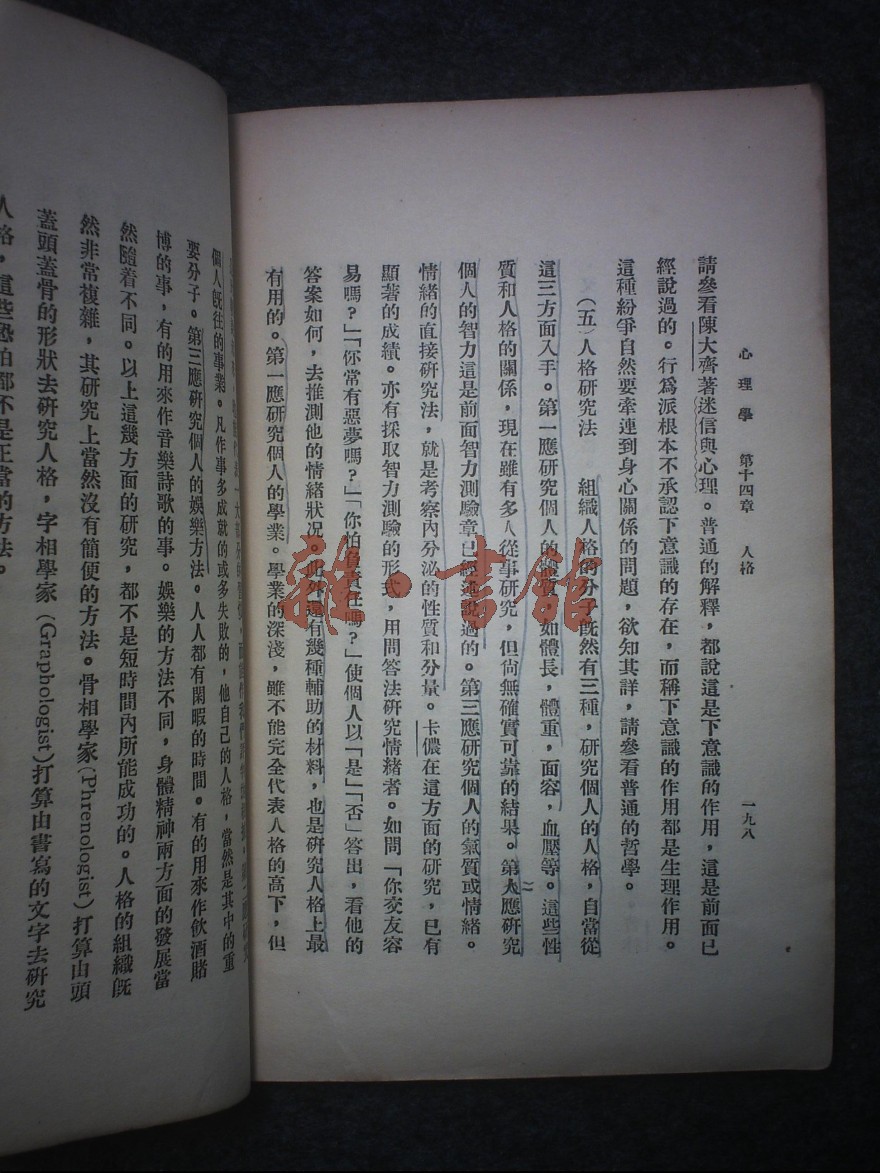 心理學 第十四章 人格 一九八
請參看陳大齊著迷信與心理。普通的解釋，都說這是下意識的作用，這是前面已
經說過的。行爲派根本不承認下意識的存在，而稱下意識的作用都是生理作用。
這種紛爭自然要牽連到身心關係的問題，欲知其詳，請參看普通的哲學。
（五）人格研究法 組織人格的分子旣然有三種，研究個人的人格，自當從
這三方面入手。第一應研究個人的體質，如體長，體重，面容，血壓等。這些性
質和人格的關係，現在雖有多人從事研究，但尚無確實可靠的結果。第人應研究
個人的智力這是前面智力測驗章已經通說過的。第三應研究個人的氣质或情緒。
情緒的直接研究法，就是考察內分泌的性質和分量。卡儂在這方面的研究，已有
顯著的成績。亦有採取智力測驗的形式，用問答法研究情緒者。如問「你交友容
易嗎？」「你常有惡夢嗎？」「你怕負責任嗎？」使個人以「是」「否」答出，看他的
答案如何，去推測他的情緒狀況。此外還有幾種輔助的材料，也是研究人格上最
有用的。第一應研究個人的學業。學業的深淺，雖不能完全代表人格的高下，但
個人旣往的事業。凡作事多成就的或多失敗的，他自己的人格，當然是其中的重
要分子。第三應研究個人的娛樂方法。人人都有閑暇的時間。有的用來作飲酒賭
博的事，有的用來作音樂詩歌的事。娛樂的方法不同，身體精神兩方面的發展當
然隨着不同。以上這幾方面的研究，都不是短時間內所能成功的。人格的組織旣
然非常複雜，其研究上當然沒有簡便的方法。骨相學家(Phrenologist)打算由頭
蓋頭蓋骨的形狀去研究人格，字相學家(Graphologist)打算由書寫的文字去研究
人格，這些恐怕都不是正當的方法。
雜·書館